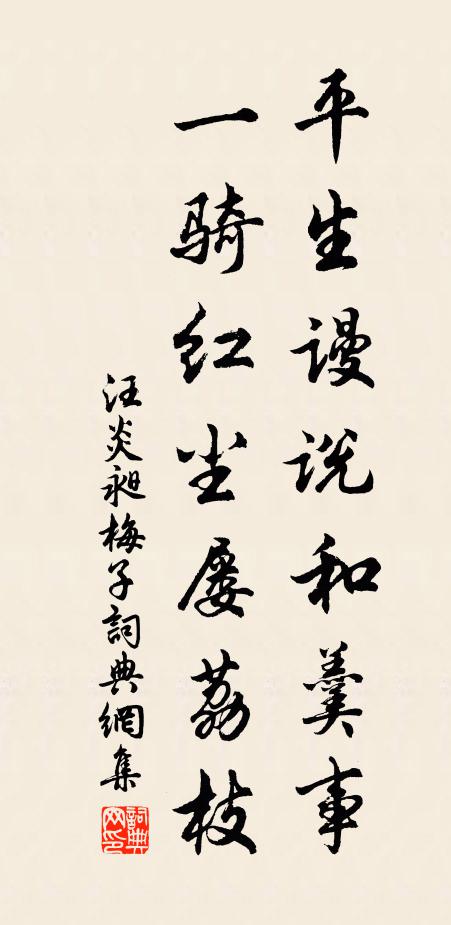 平生谩说和羹事
一骑红尘屡荔枝
汪炎昶梅子詞典網集
詞典网印